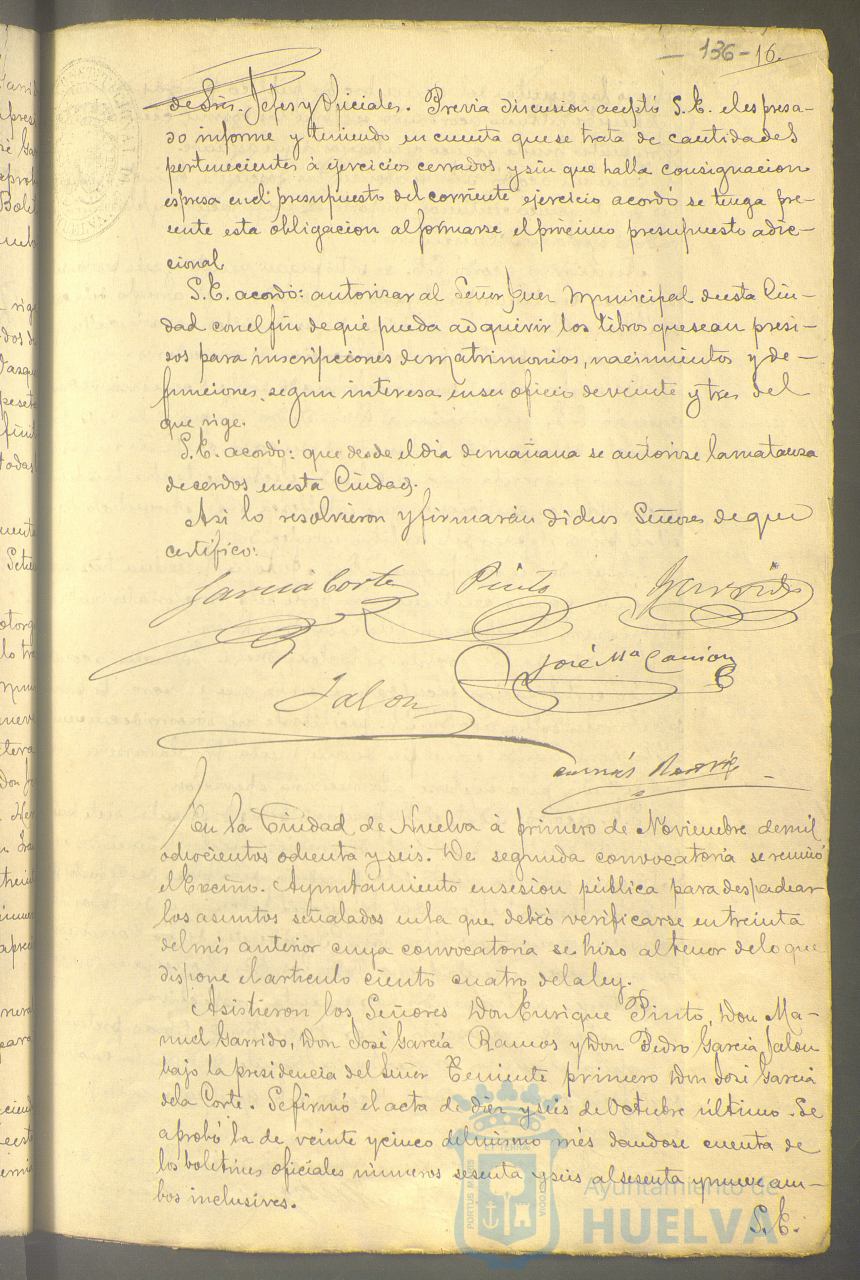 - 136 - 16.
de Sres. Jefes y Oficiales. Previa discusion aceptó S. E. el espresa-
do informe y teniendo en cuenta que se trata de cantidades
pertenecientes á ejercicios cerrados y sin que halla consignacion
espresa en el presupuesto del corriente ejercicio acordó se tenga pre-
sente esta obligacion al formarse el prócimo presupuesto adic-
cional
S. E. acordó: autorizar al Señor Juez Municipal de esta Ciu-
dad con el fin de que pueda adquirir los libros que sean presi-
sos para inscripciones de matrimonios, nacimientos y de-
funciones, segun interesa en su oficio de veinte y tres del
que rige.
S. E. acordó: que desde el dia de mañana se autorize la matanza
de cerdos en esta Ciudad.
Asi lo resolvieron y firmarán dichos Señores de que
certifico:
Garcia Corte Pinto Garrido
José Mª
Jalon
En la Ciudad de Huelva á primero de Noviembre de mil
ochocientos ochenta y seis. De segunda convocatoria se reunió
el Excmo. Ayuntamiento en sesion pública para despachar
los asuntos señalados en la que debió verificarse en treinta
del mes anterior cuya convocatoria se hizo al tenor de lo que
dispone el articulo ciento cuatro de la ley.
Asistieron los Señores Don Enrique Pinto, Don Ma-
nuel Garrido, Don José García Ramos y Don Pedro García Jalon
bajo la presidencia del Señor Teniente primero Don José García
de la Corte. Se firmó el acta de diez y seis de Octubre último. Se
aprobó la de veinte y cinco del mismo mes dandose cuenta de
los boletines oficiales números sesenta y seis al sesenta y nueve am-
bos inclusives.
S. E.
Ayuntamiento de
HUELVA